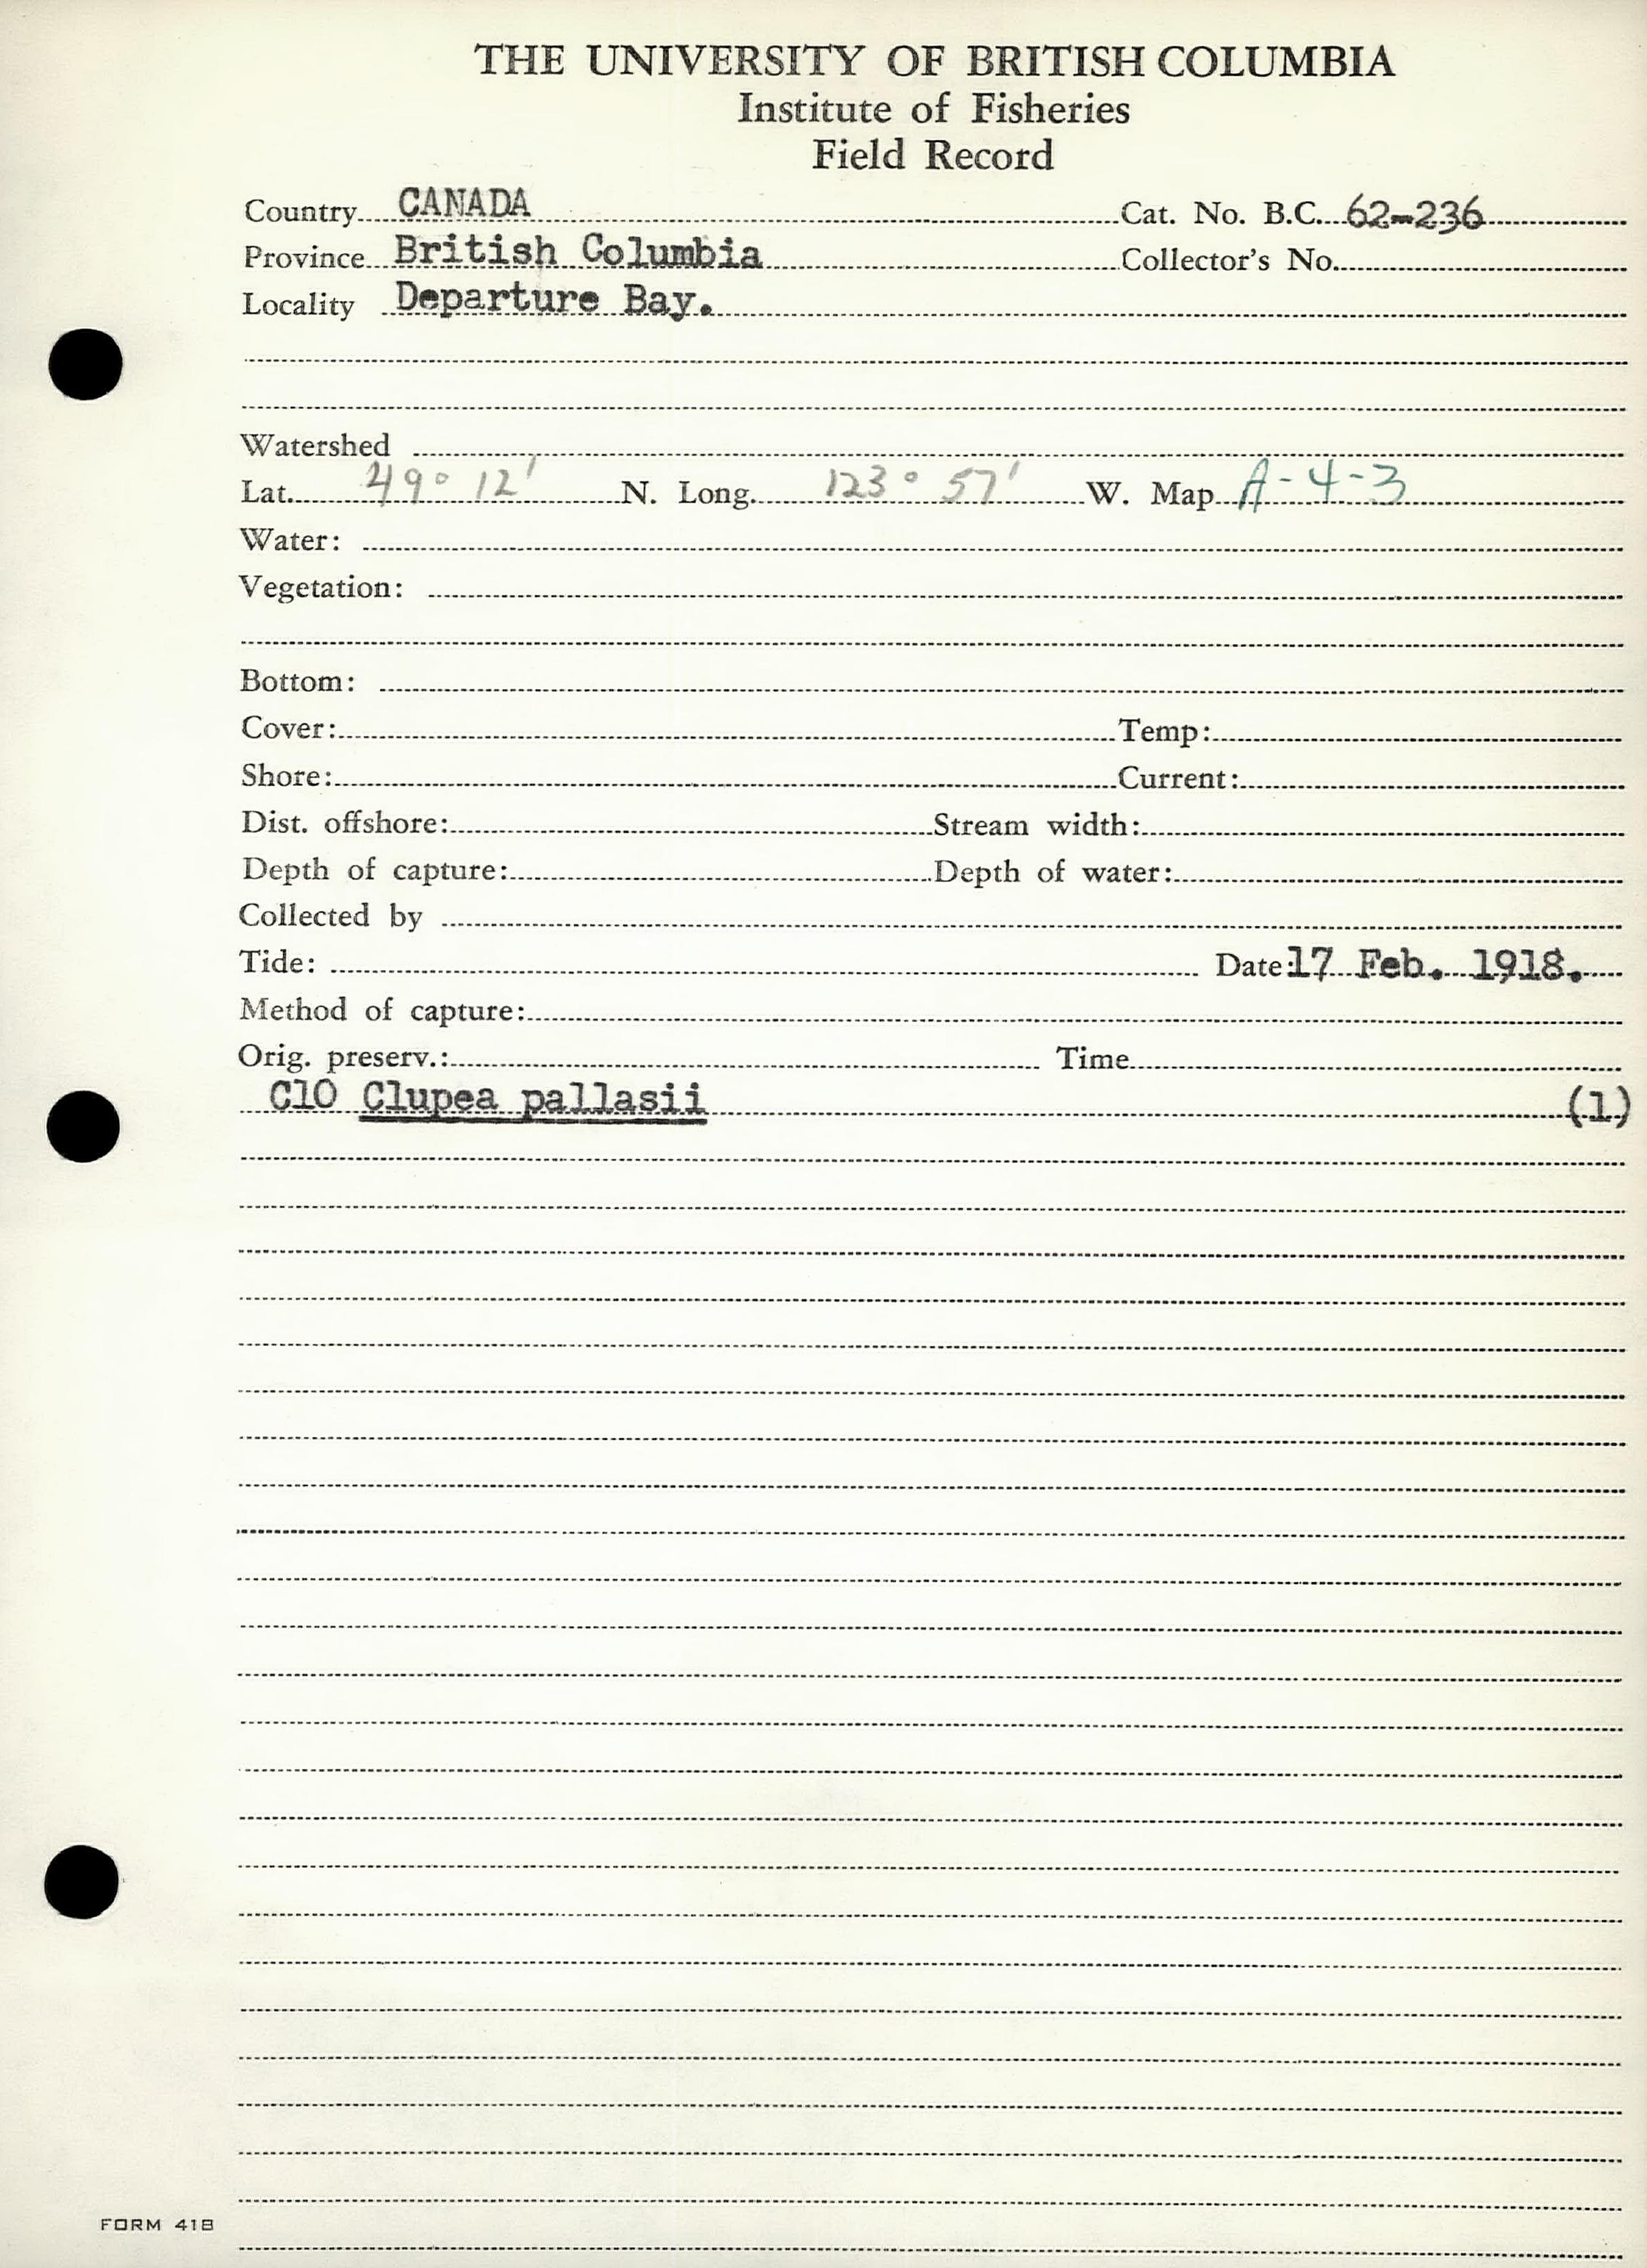 THE UNIVERSITY OF BRITISH COLUMBIA
Institute of Fisheries
Field Record
Country CANADA Cat. No. B.C. 62-236
Province British Columbia Collector's No.
Locality Departure Bay.
Watershed
Lat. 49° 12' N. Long. 123° 57' W. Map A-4-3
Water:
Vegetation:
Bottom:
Cover: Temp:
Shore: Current:
Dist. offshore: Stream width:
Depth of capture: Depth of water:
Collected by
Tide: Date: 17 Feb. 1918.
Method of capture:
Orig. preserv.: Time
C10 Clupea pallasii (1)
FORM 41B